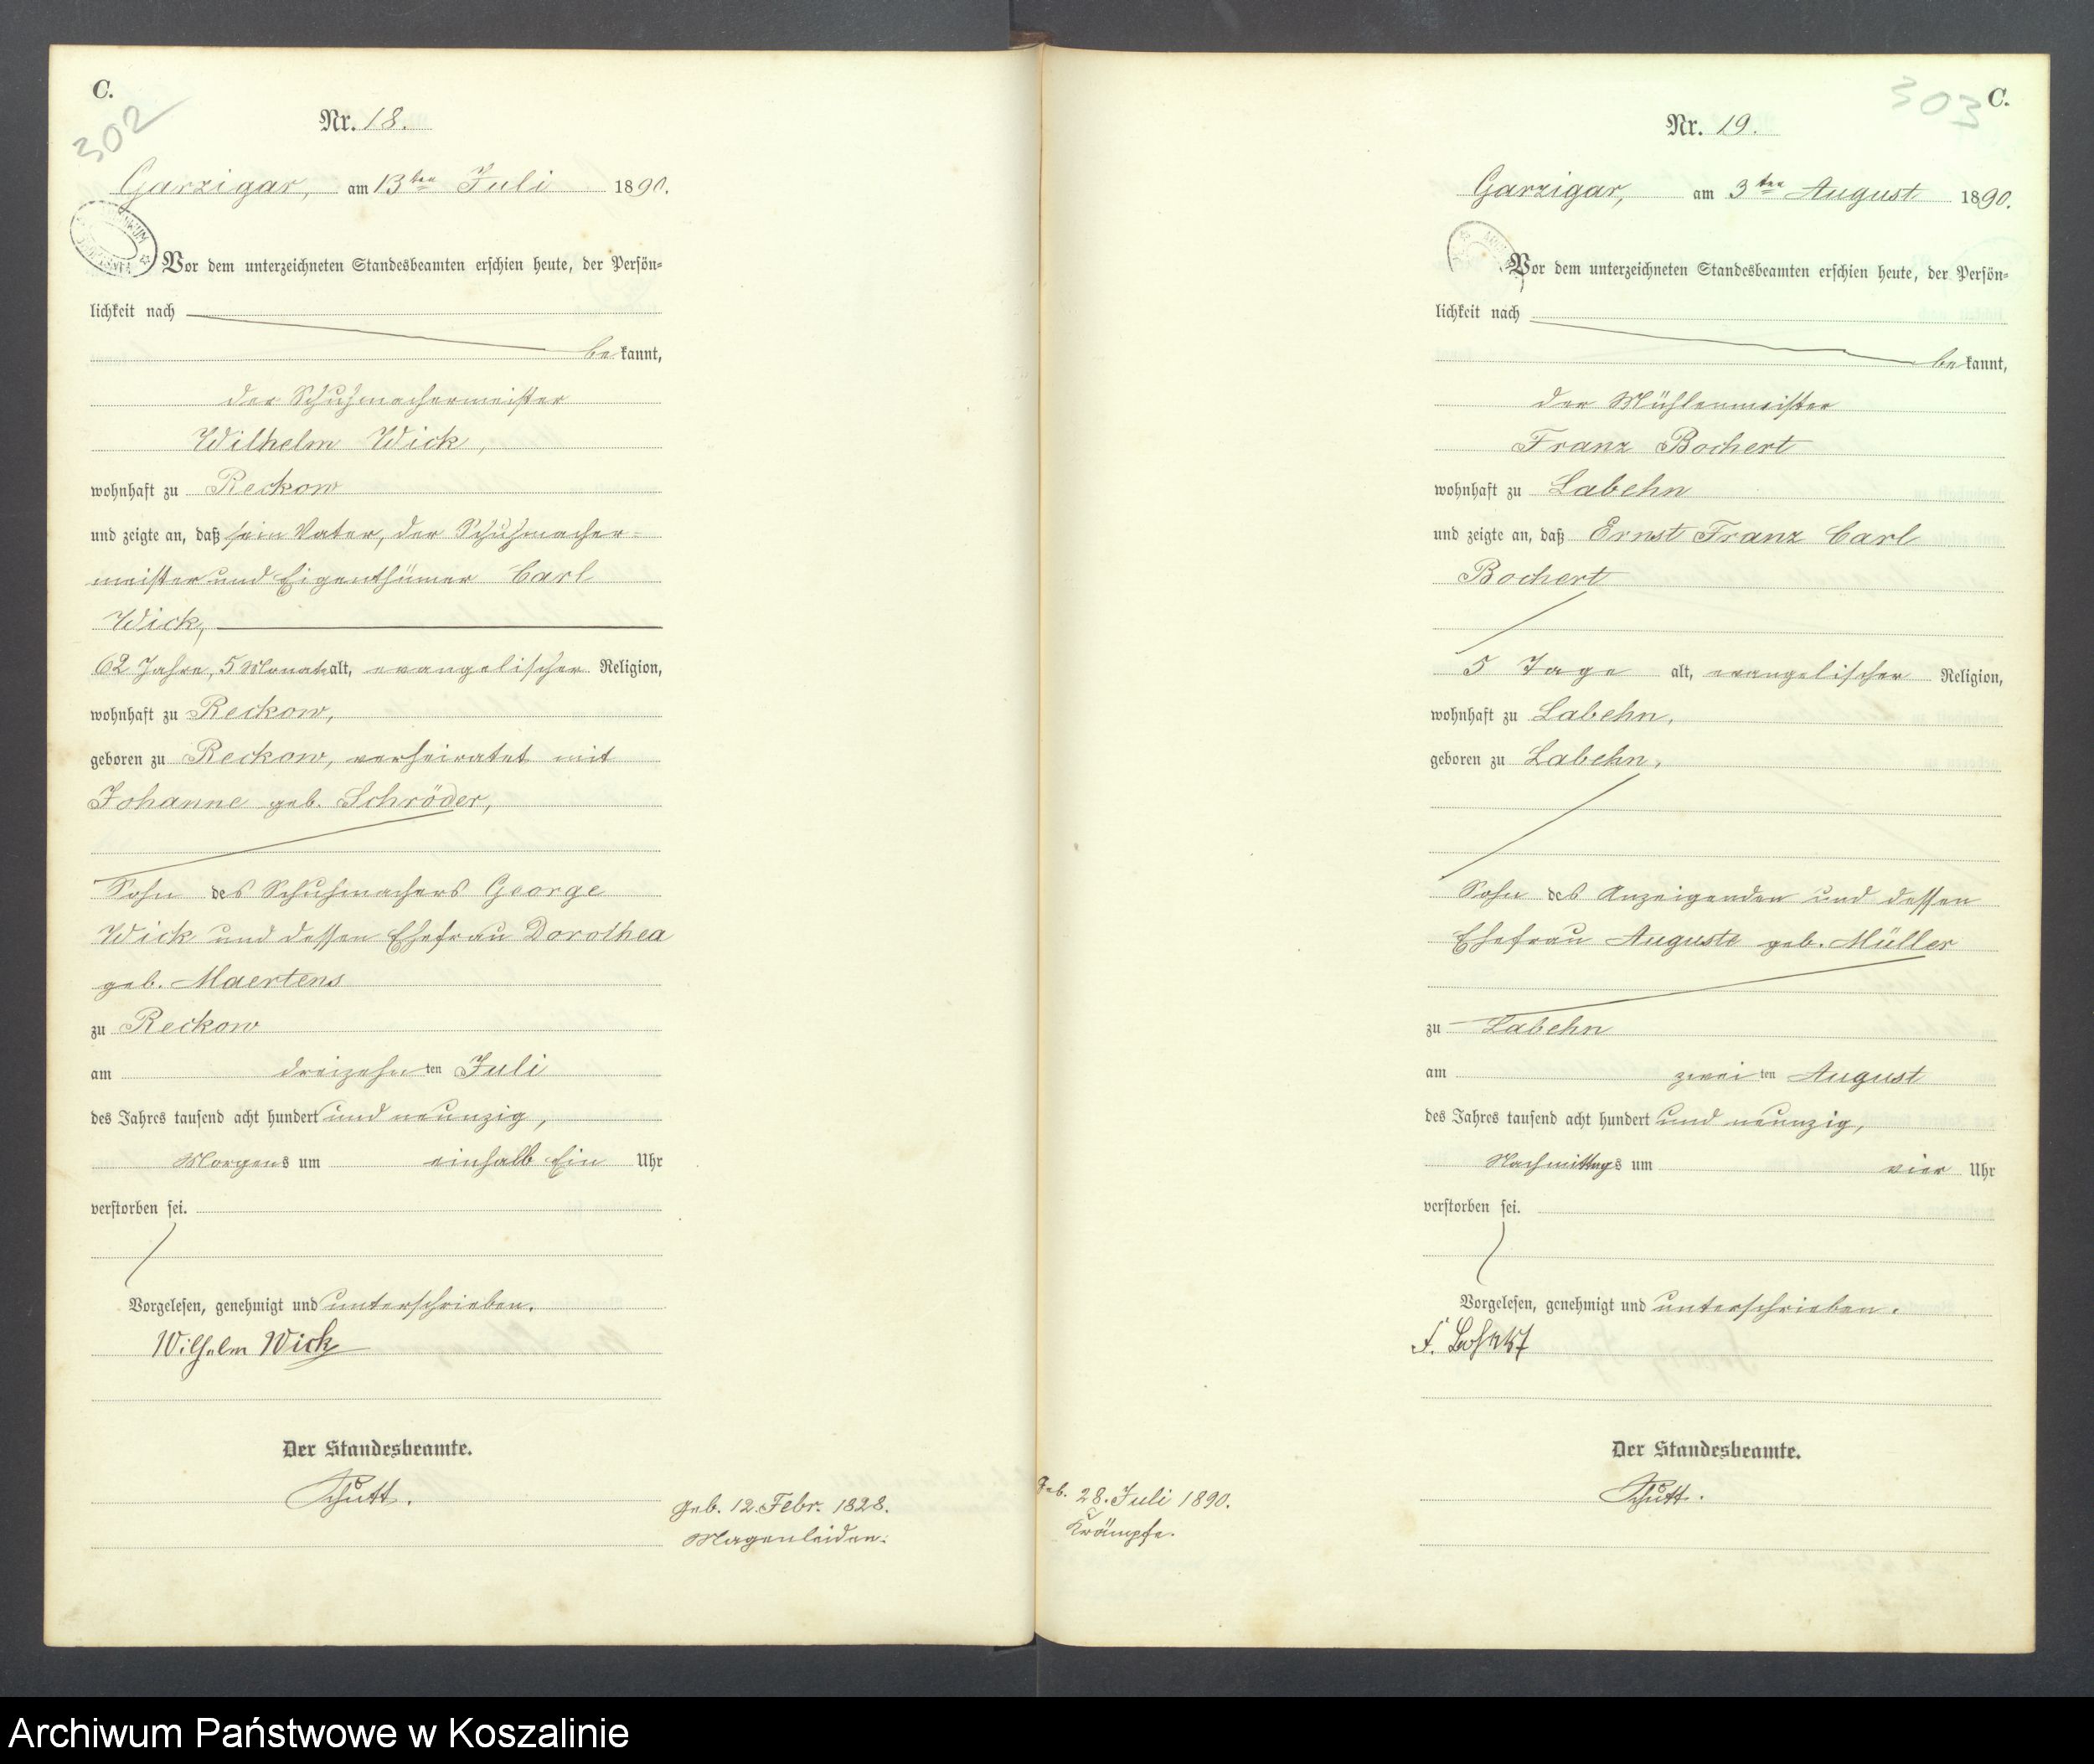 C.
302
Nr. 18.
Garzigar, am 13ten Juli 1890.
Vor dem unterzeichneten Standesbeamten erschien heute, der Persön-
lichkeit nach
bekannt,
der Schuhmachermeister
Wilhelm Wick,
wohnhaft zu Reckow
und zeigte an, daß sein Vater, der Schuhmacher-
meister und Eigenthümer Carl
Wick,
62 Jahre, 5 Monat alt, evangelischer Religion,
wohnhaft zu Reckow,
geboren zu Reckow, verheiratet mit
Johanne geb. Schröder,
Sohn des Schuhmachers George
Wick und dessen Ehefrau Dorothea
geb. Maertens
zu Reckow
am dreizehnten Juli
des Jahres tausend acht hundert und neunzig,
Morgens um einhalb Ein Uhr
verstorben sei.
Vorgelesen, genehmigt und unterschrieben.
Wilhelm Wick
Der Standesbeamte.
Schütt.
geb. 12. Febr. 1828.
Magenleiden.
303
C.
Nr. 19.
Garzigar, am 3ten August 1890.
Vor dem unterzeichneten Standesbeamten erschien heute, der Persön-
lichkeit nach
bekannt,
der Mühlenmeister
Franz Bochert
wohnhaft zu Labehn
und zeigte an, daß Ernst Franz Carl
Bochert
5 Tage alt, evangelischer Religion,
wohnhaft zu Labehn,
geboren zu Labehn,
Sohn des Anzeigenden und dessen
Ehefrau Auguste geb. Müller
zu Labehn
am zweiten August
des Jahres tausend acht hundert und neunzig,
Nachmittags um vier Uhr
verstorben sei.
Vorgelesen, genehmigt und unterschrieben.
F.
Der Standesbeamte.
Schütt.
Geb. 28. Juli 1890.
Krämpfe.
Archiwum Państwowe w Koszalinie